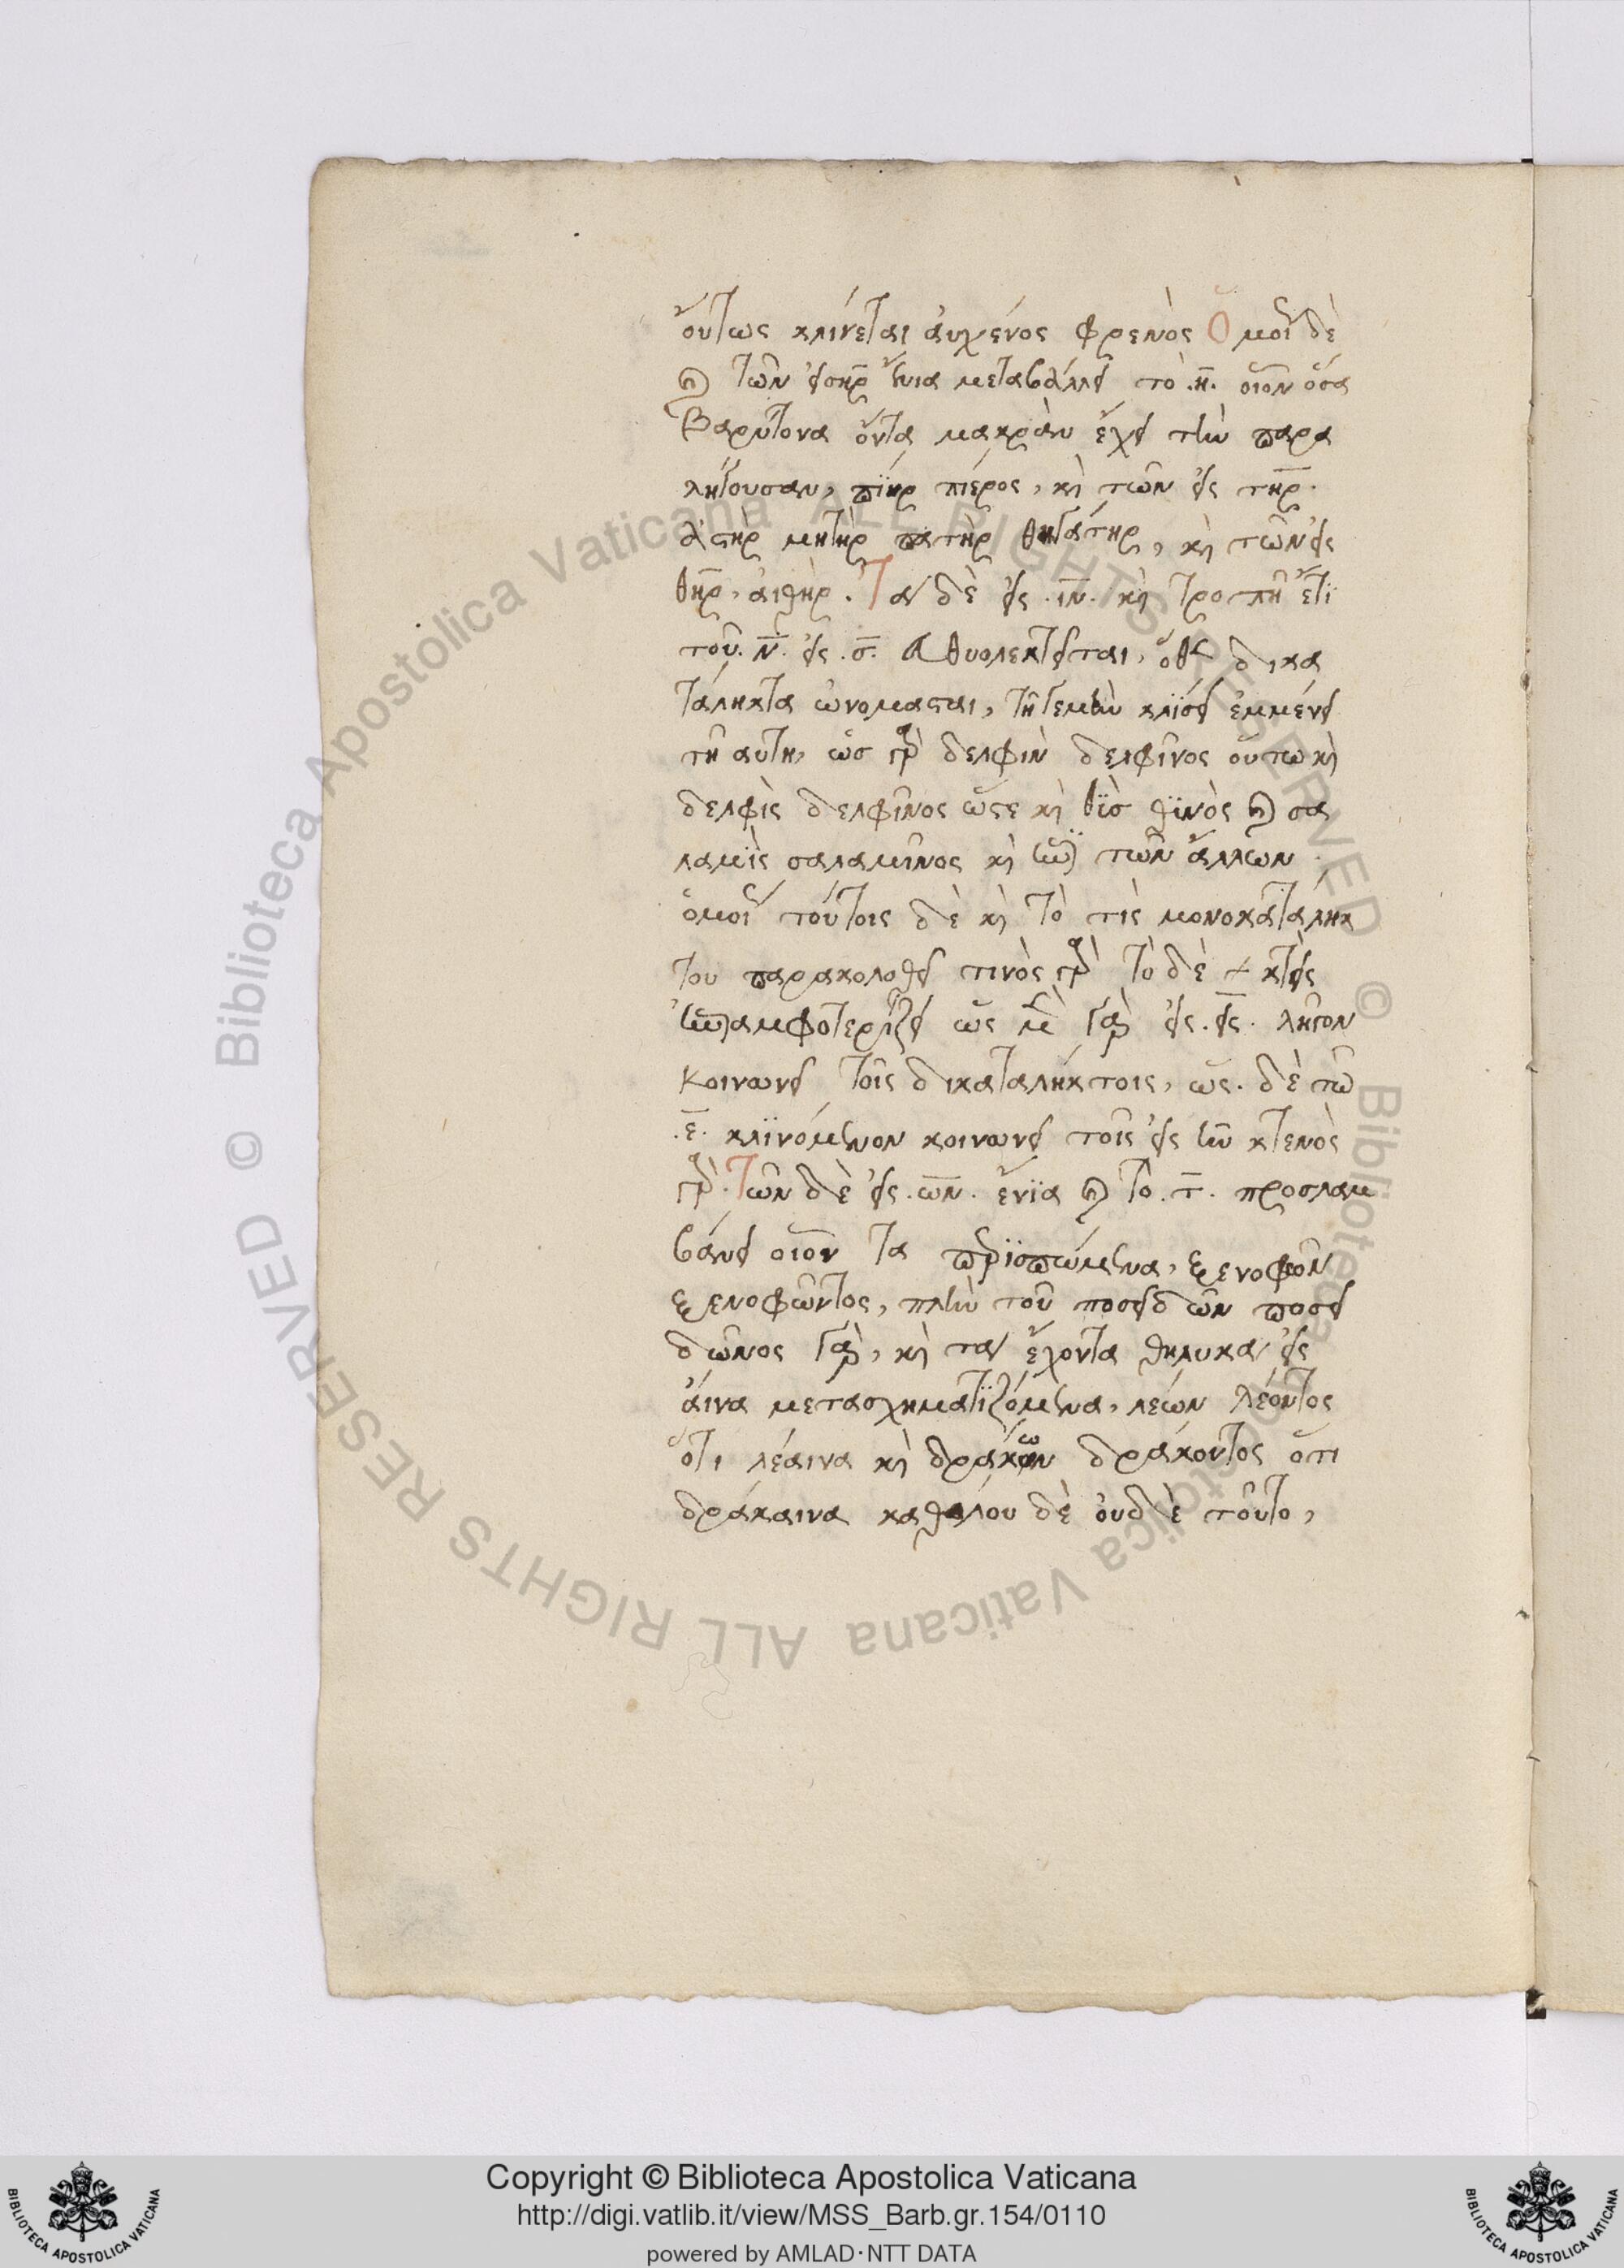 οὕτως κλίνεται αὐχένος φρενὸς Ὁμοί δὲ
καὶ τῶν εἰσηρ ἔνια μεταβάλλει τὸ .η. οἷον ὅσα
Βαρύτονα ὄντα μακρὰν ἔχει τὴν παρα
λήγουσαν, πϊήρ πιέρος, κὶ τῶν εἰς τηρ.
ἀστὴρ μητὴρ πατὴρ θηγάτηρ, κὶ τῶν εἰς
θηρ, αἰθὴρ. Τὰ δὲ εἰς .ιν. κὶ τροπῆ ἔτι
τοῦ .ν. εἰς .σ. ὅθεν δικα
τάληκτα ὠνομασται, τῆ γεμὴν κλίσει ἐμμένει
τῆ αὐτη, ὡσ παρὰ δελφιν δελφῖνος οὕτω κὶ
δελφὶς δελφῖνος ὥστε κὶ θϊσ θϊνὸς καὶ σα
λαμῒς σαλαμῖνος κὶ ἐπῒ τῶν ἄλλων.
ὁμοί τούτοις δὲ κὶ τὸ τὶς μονοκατάληκ
του παρακολοθεῖ τινὸς παρὰ τὸ δὲ κτεὶς
ἐπαμφοτερΐζει ὡς μὲν γὰρ εἰς .εις. λῆγον
κοινωνεῖ τοῖς δικαταλήκτοις, ὡς. δὲ τῶ
.ε. κλϊνόμενον κοινωνεῖ τοῖς εἰς ην κτενὸς
παρὰ. Τῶν δὲ εἰς .ων. ἔνϊα καὶ τὸ .τ. προσλαμ
βάνει οἷον τα περϊσπώμενα, ξενοφῶν
ξενοφῶντος, πλὴν τοῦ ποσειδῶν ποσει
δῶνος γὰρ, κὶ τὰ ἔχοντα θηλυκὰ εἰς
άινα μετασχηματϊζόμενα, λεών λέοντος
ὅτι λέαινα κὶ δράκων δράκοντος ὅτι
δράκαινα καθόλου δὲ οὐδὲ τοῦτο,
Copyright © Biblioteca Apostolica Vaticana
http://digi.vatlib.it/view/MSS_Barb.gr.154/0110
powered by AMLAD·NTT DATA
BIBLIOTECA APOSTOLICA VATICANA
BIBLIOTECA APOSTOLICA VATICANA
© Biblioteca Apostolica Vaticana ALL RIGHTS RESERVED © Biblioteca Apostolica Vaticana ALL RIGHTS RESERVED